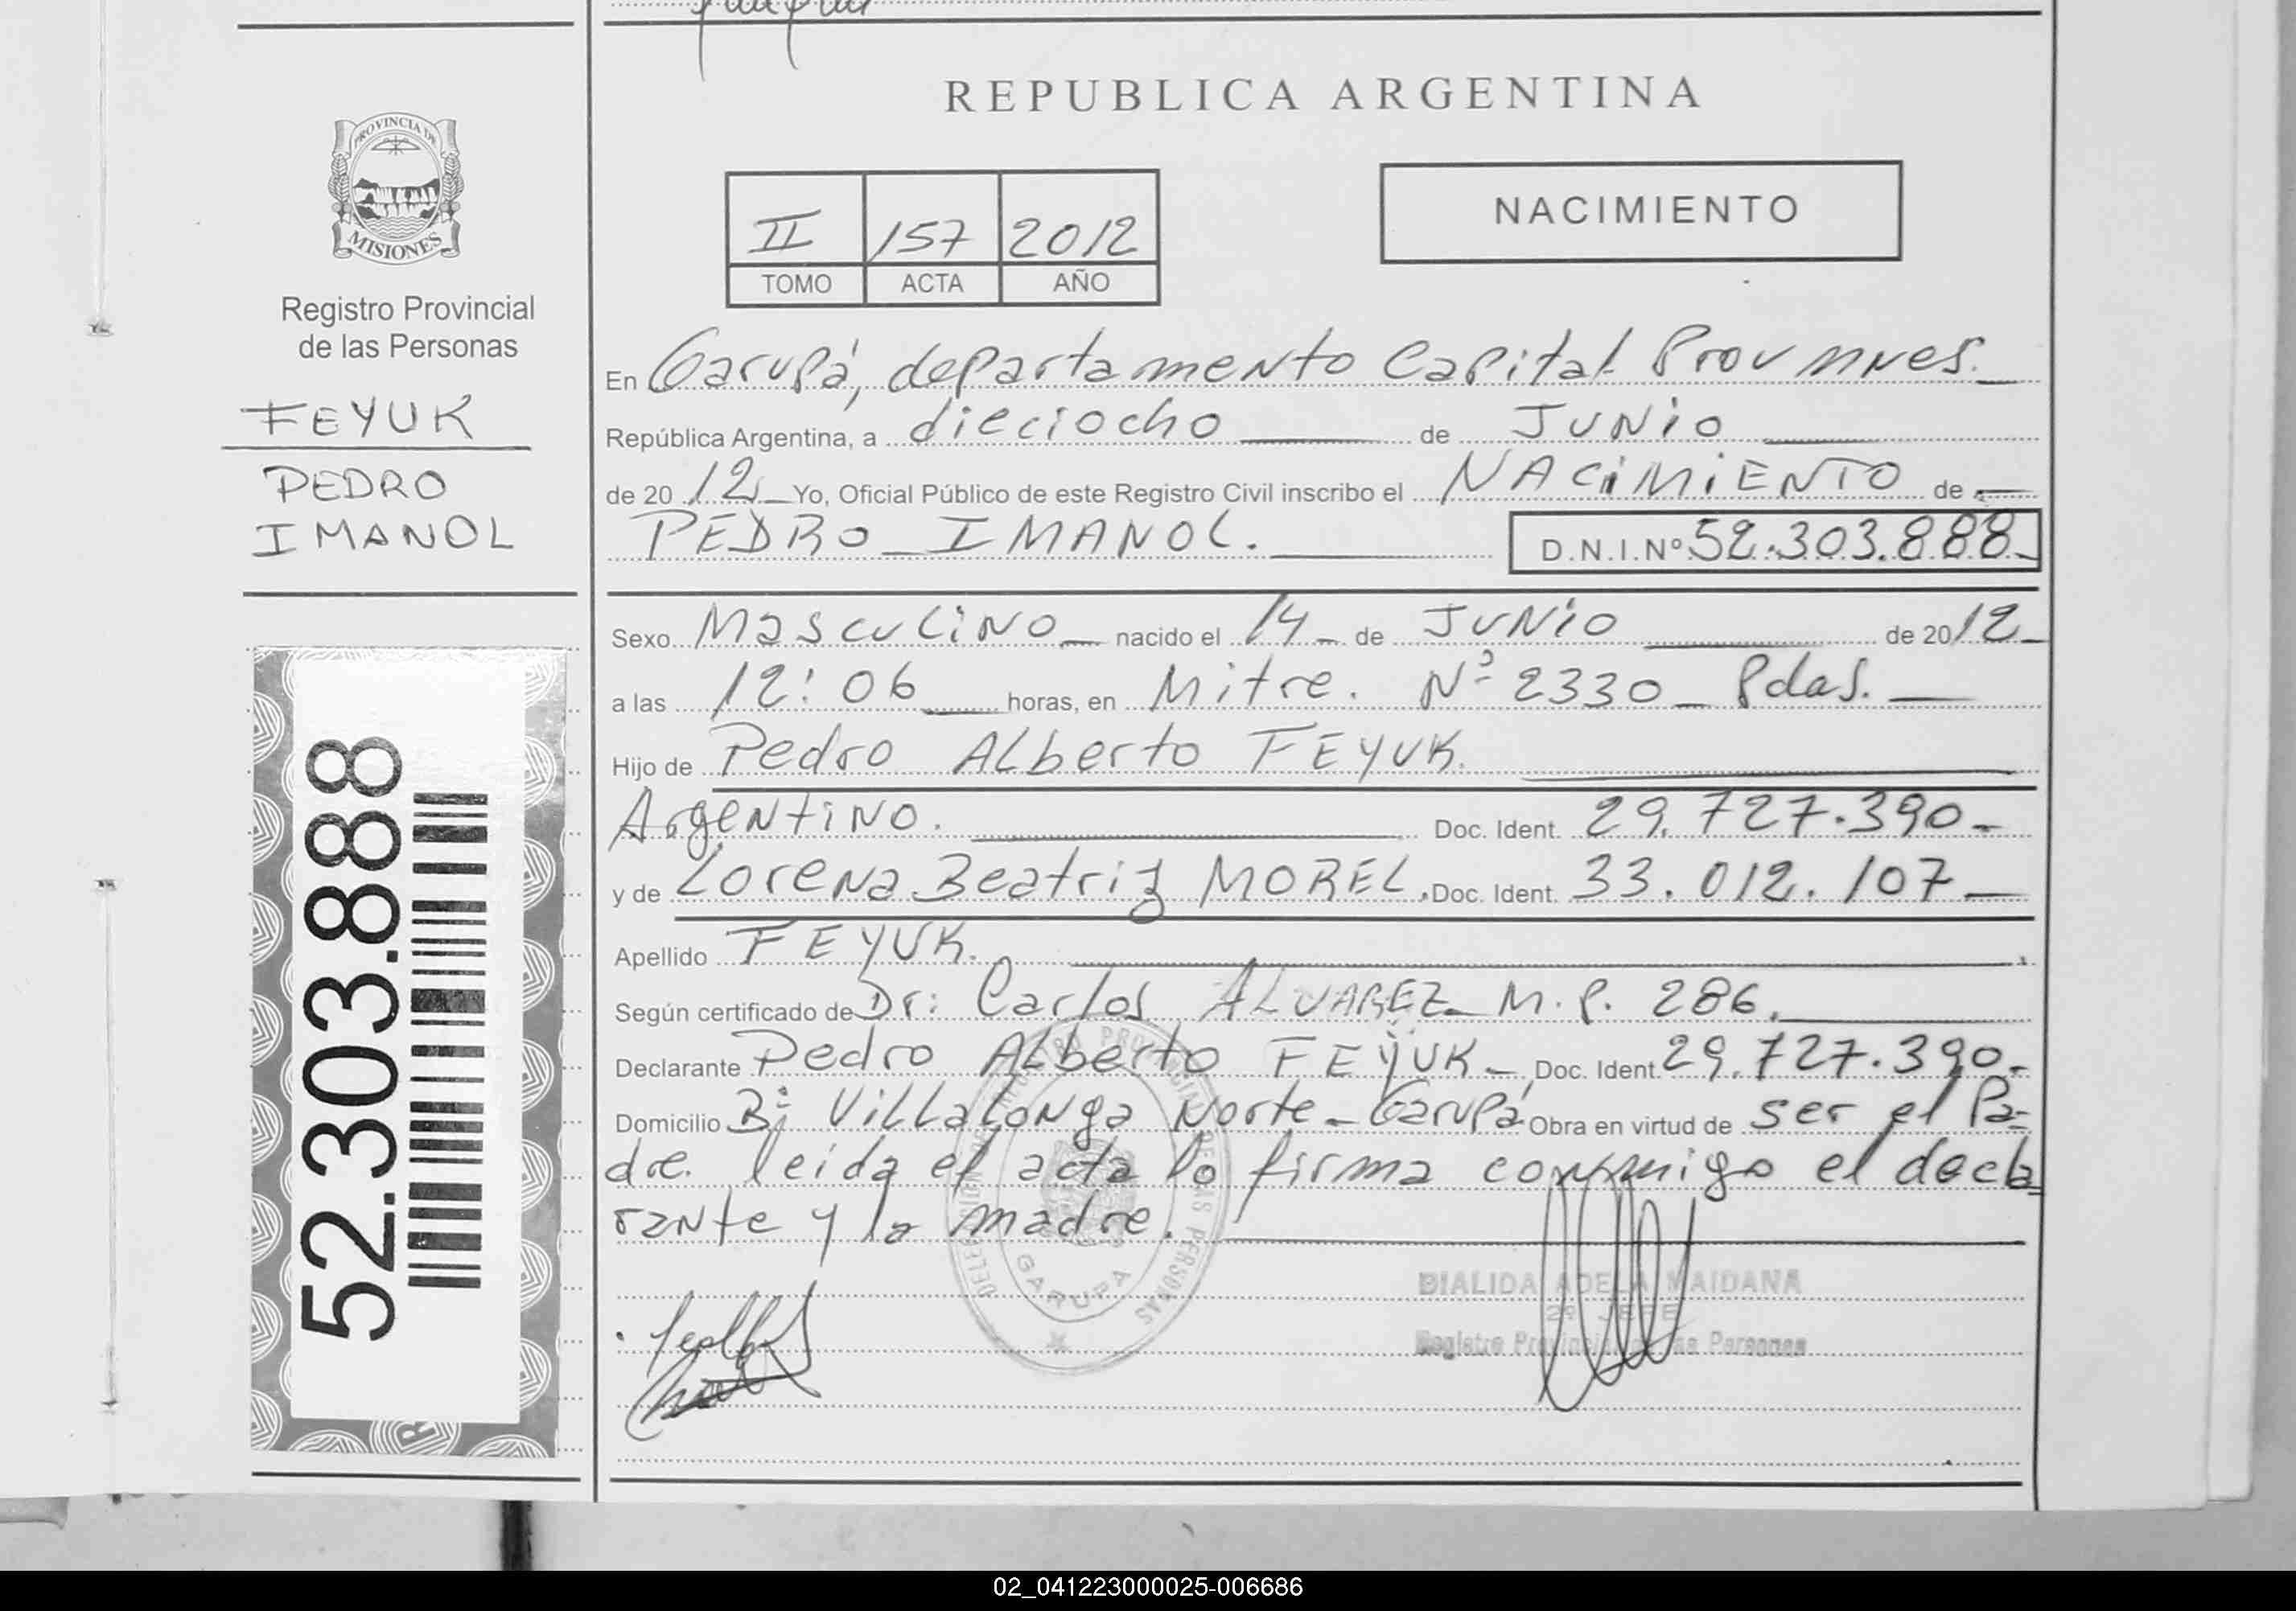 REPUBLICA ARGENTINA
PROVINCIA DE
MISIONES
Registro Provincial
de las Personas
FEYUK
PEDRO
IMANOL
52.303.888
II 157 2012
TOMO ACTA AÑO
NACIMIENTO
En Garupá, departamento Capital Prov mnes.
República Argentina, a dieciocho de JUNIO
de 20 12 Yo, Oficial Público de este Registro Civil inscribo el NACIMIENTO de
PEDRO IMANOL. D.N.I.Nº 52.303.888
Sexo Masculino nacido el 14 de JUNIO de 2012
a las 12:06 horas, en Mitre. Nº 2330 Pdas.
Hijo de Pedro Alberto FEYUK.
Argentino. Doc. Ident. 29.727.390
y de Lorena Beatriz MOREL. Doc. Ident. 33.012.107
Apellido FEYUK.
Según certificado de Dr: Carlos ALVAREZ M.P. 286.
Declarante Pedro Alberto FEYUK Doc. Ident. 29.727.390
Domicilio Bº Villalonga Norte - Garupá Obra en virtud de ser el Pa-
dre. leida el acta lo firma conmigo el decla
rante y la madre.
GARUPA
DIALIDA ADELA MAIDANA
2º JEFE
Registro Provincial de las Personas
02_041223000025-006686